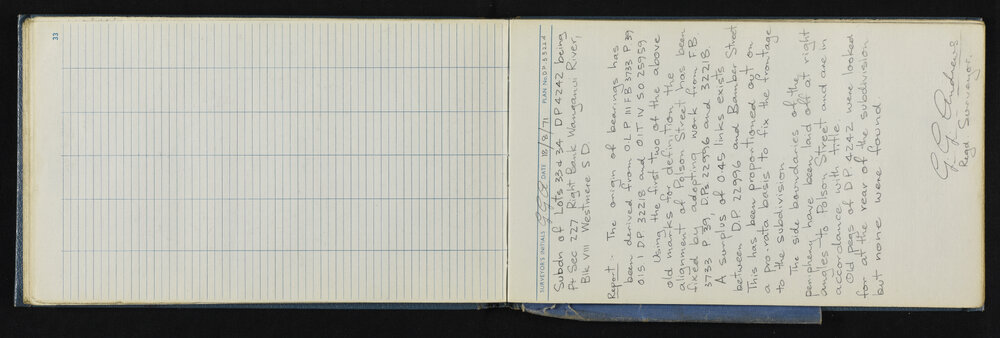 33
SURVEYOR'S INITIALS G.G.A. DATE 18/8/71 PLAN No. D.P. 33224
Subdn of Lots 33 & 34 DP 4242 being
Pt Sec 227 Right Bank Wanganui River,
Blk VIII Westmere S.D.
Report :- The origin of bearings has
been derived from O.L.P. III FB 3733 P.39
OIS I D.P. 32218 and OIT IV SO 25959
Using the first two of the above
old marks for definition the
alignment of Polson Street has been
fixed by adopting work from FB
3733 P 39, D.Ps 22996 and 32218.
A surplus of 0.45 links exists
between D.P. 22996 and Bamber Street
This has been proportioned out on
a pro-rata basis to fix the frontage
to the subdivision
The side boundaries of the
periphery have been laid off at right
angles to Polson Street and are in
accordance with title.
Old pegs of D.P. 4242 were looked
for at the rear of the subdivision
but none were found
G G Andrews
Regd Surveyor.